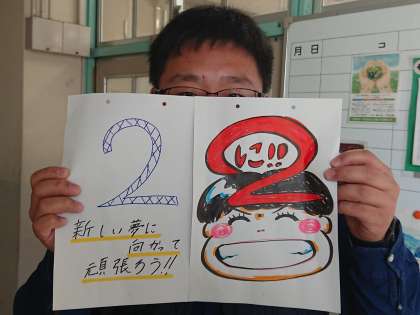 月 日
コ
2
に!!
2
新しい夢に
向かって
頑張ろう!!